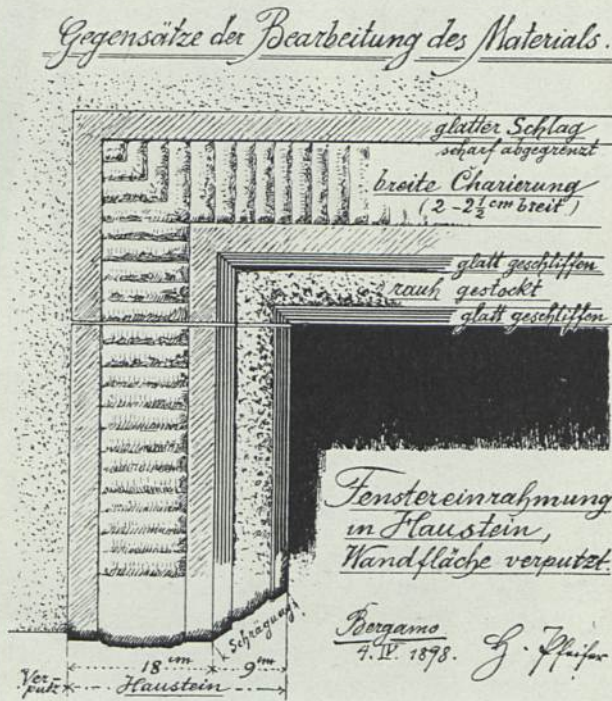 Gegensätze der Bearbeitung des Materials.
glatter Schlag
scharf abgegrenzt
breite Charierung
(2-2½ cm breit)
glatt geschliffen
rauh gestockt
glatt geschliffen
Fenstereinrahmung
in Haustein,
Wandfläche verputzt.
Schrägung
Bergamo
4. IV. 1898.
H. Pfeifer
18 cm
9 cm
Ver-
putz
Haustein